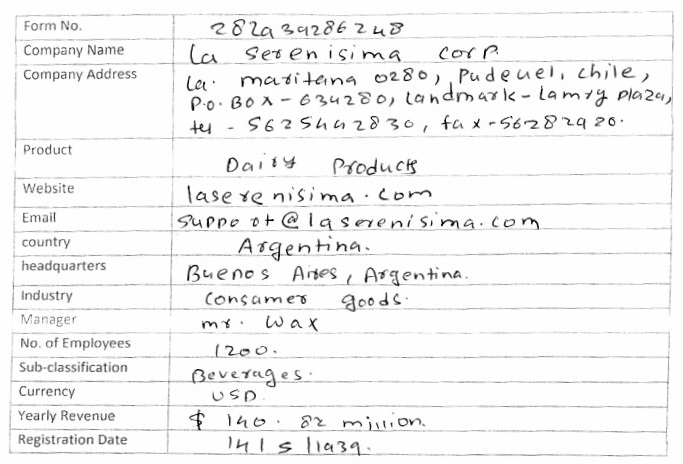 Form No. 282939286248
Company Name La serenisima corp.
Company Address La. maritana 0280, Pudeuel, chile,
P.o. Box - 634280, Landmark - Lamry plaza,
tel - 5625442830, fax - 56282920.
Product Dairy Products
Website laserenisima.com
Email support@laserenisima.com
country Argentina.
headquarters Buenos Aires, Argentina.
Industry Consumer goods.
Manager mr. Wax
No. of Employees 1200.
Sub-classification Beverages.
Currency USD.
Yearly Revenue $ 140.82 million.
Registration Date 14/5/1939.